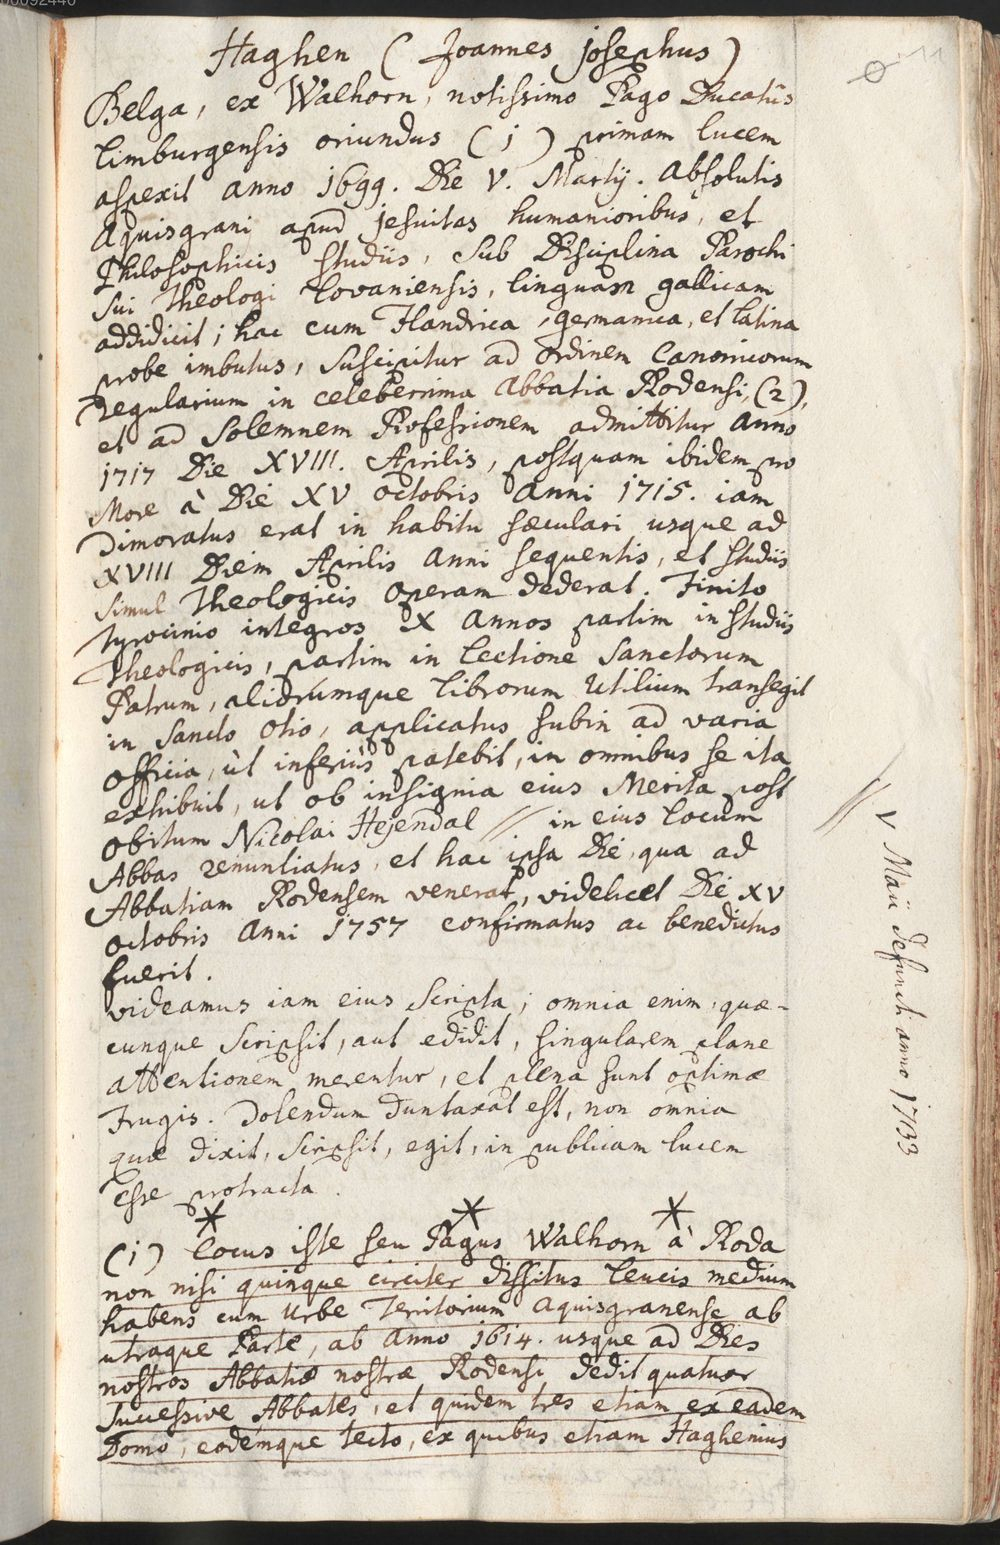 Haghen ( Joannes josephus )
Belga, ex Walhorn, notissimo Pago Ducatûs
limburgensis oriundus ( 1 ) primam lucem
aspexit anno 1699. Die V. Martij. absolutis
Aquisgrani apud jesuitas humanioribus, et
Philosophicis studiis, sub Disciplina Parochi
sui Theologi lovaniensis, linguam gallicam
addidicit; hac cum Flandrica, germanica, et latina
probe imbutus, suscipitur ad ordinem Canonicorum
regularium in celeberrima abbatia Rodensi, (2),
et ad solemnem Professionem admittitur anno
1717 Die XVIII. Aprilis, postquam ibidem pro
More à Die XV octobris anni 1715. iam
Dimoratus erat in habitu sæculari usque ad
XVIII Diem Aprilis anni sequentis, et studiis
simul Theologicis operam dederat. Finito
tyrocinio integros X annos partim in studiis
Theologicis, partim in lectione sanctorum
Patrum, aliorumque librorum utilium transegit
in sancto otio, applicatus subin ad varia
officia, ùt inferiùs patebit, in omnibus se ita
exhibuit, ut ob insignia eius Merita post
obitum Nicolai Hejendal // in eius locum
Abbas renuntiatus, et hac ipsa Die, qua ad
Abbatiam Rodensem venerat, videlicet Die XV
octobris anni 1757 confirmatus ac benedictus
fuerit.
videamus iam eius scripta; omnia enim, quæ-
cunque scripsit, aut edidit, singularem plane
attentionem merentur, et plena sunt optimæ
Frugis. Dolendum duntaxat est, non omnia
quæ dixit, scripsit, egit, in publicam lucem
esse protracta.
* * *
(1) locus iste seu Pagus Walhorn à Roda
non nisi quinque circiter dissitus leucis medium
habens cum Urbe Territorium aquisgranense ab
utraque Parte, ab anno 1614. usque ad Dies
nostros Abbatiæ nostræ Rodensi dedit quatuor
successive Abbates, et quidem tres etiam ex eadem
Domo, eodemque tecto, ex quibus etiam Haghenius
// V Maii defuncti anno 1733